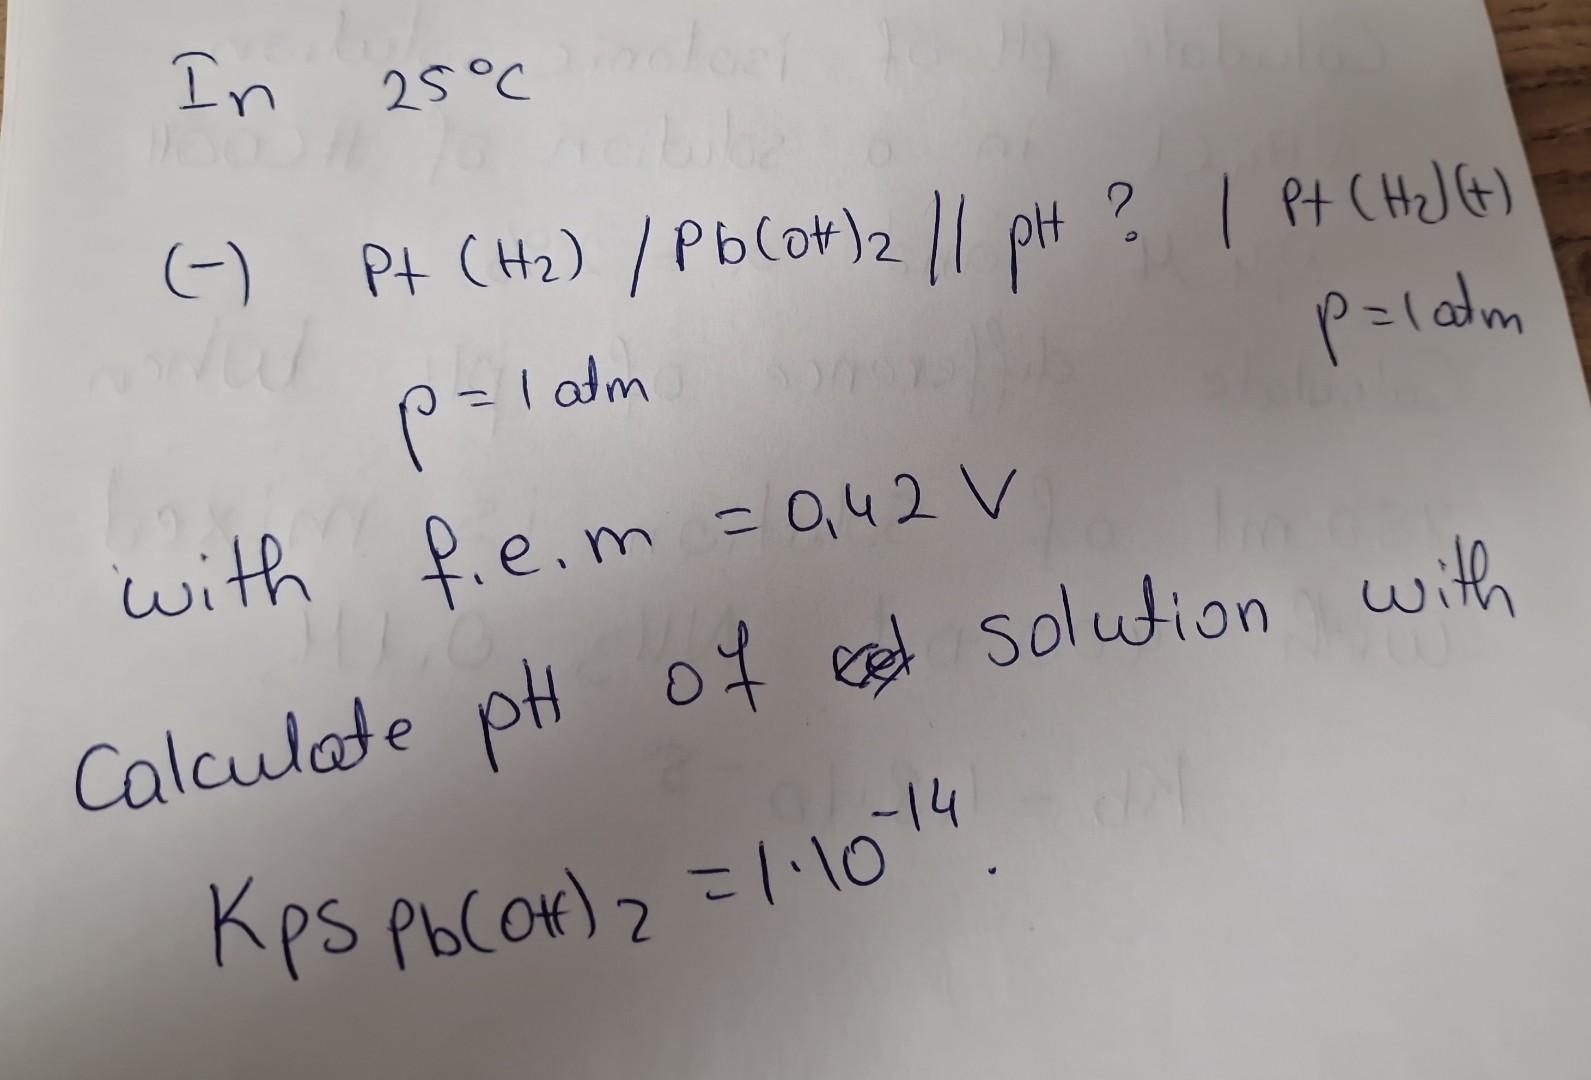 In 25°C
(-) Pt (H2) / Pb(OH)2 // pH ? | Pt (H2)(+)
p = 1 atm p = 1 atm
with f.e.m = 0,42 V
Calculate pH of solution with
Kps Pb(OH)2 = 1·10^-14.